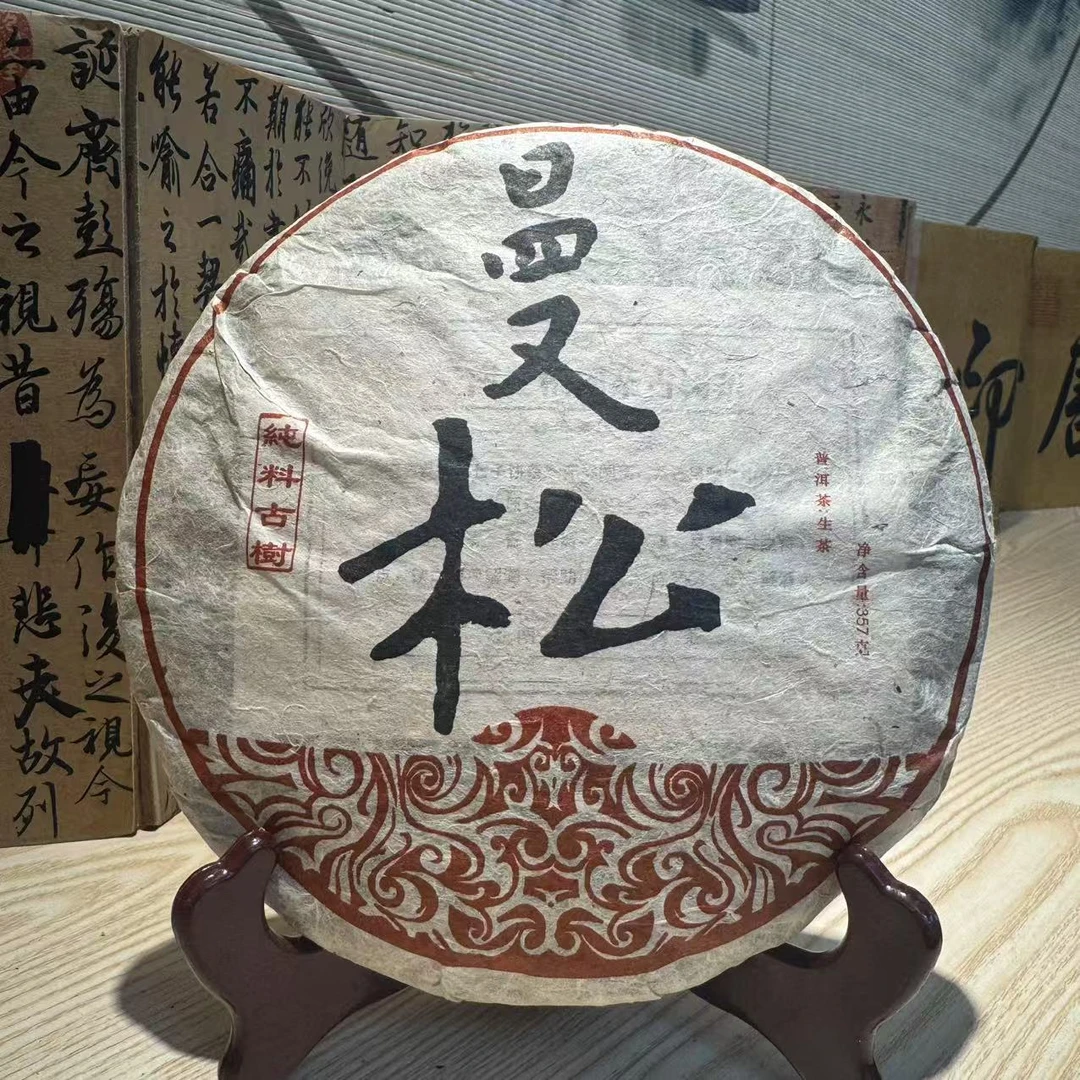 曼松
純料古樹
普洱茶:生茶
净含量:357克
永
知
隨
欣俛
能不
期於
不痛哉
若合一契
能喻之於
誕齊彭殤為妄作後之視今
由今之視昔
悲夫故列